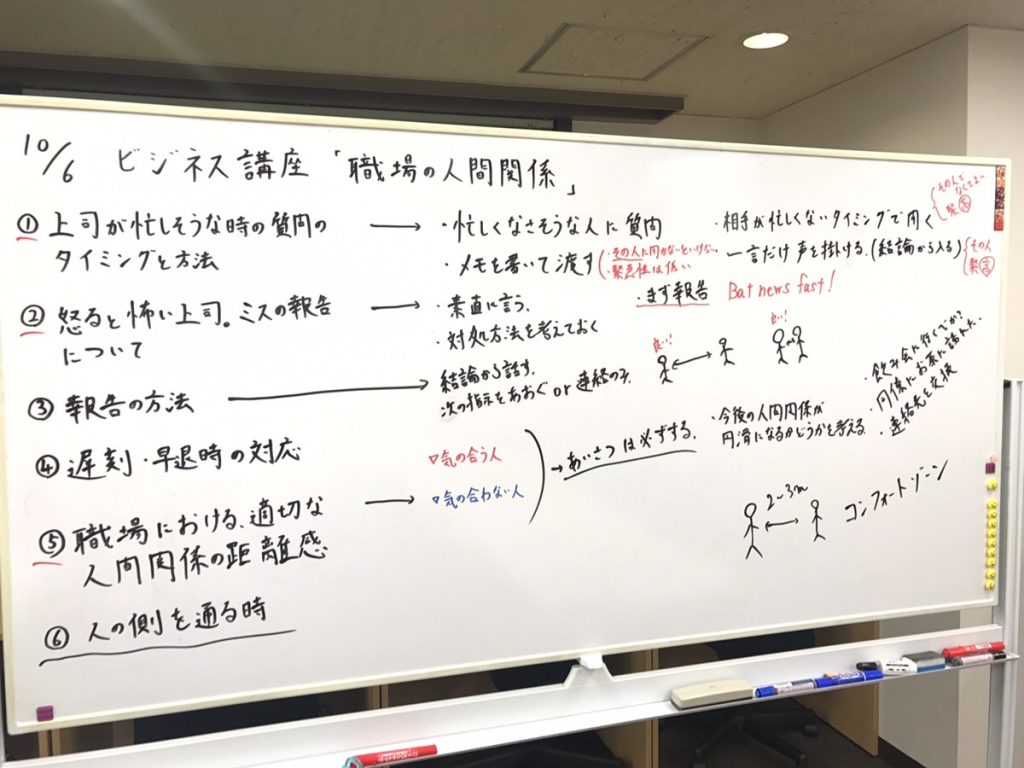 10/6 ビジネス講座「職場の人間関係」
① 上司が忙しそうな時の質問の
タイミングと方法
・忙しくなさそうな人に質問
・メモを書いて渡す
・その人に聞かないといけない。
・緊急性は低い
・相手が忙しくないタイミングで聞く
その人で
なくてもよい
緊 高
一言だけ声を掛ける。(結論から入る)
その人
緊 高
② 怒ると怖い上司。ミスの報告
について
・素直に言う。
・対処方法を考えておく
・まず報告 Bat news fast!
③ 報告の方法
結論から話す。
次の指示をあおぐ or 連絡のみ
良い!
良い!
④ 遅刻・早退時の対応
⑤ 職場における、適切な
人間関係の距離感
気の合う人
気の合わない人
あいさつは必ずする。
・今後の人間関係が
円滑になるかどうかを考える。
・飲み会に行くでか?
・同僚にお茶に誘われた。
・連絡先を交換
2~3m
コンフォートゾーン
⑥ 人の側を通る時